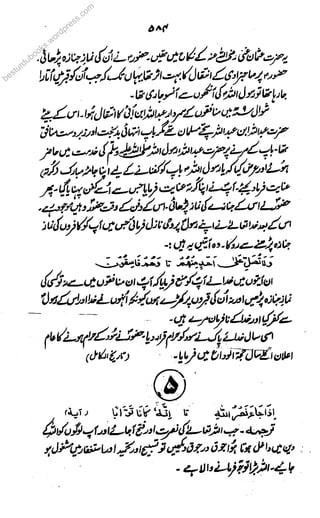 ۵۸۴
یہ حضرت عثمان غنی رضی اللہ عنہ کے نکاح میں تھیں۔ حضورؐ نے اُن کی نماز جنازہ پڑھائی۔
حضورؐ پر صاحبزادی کے انتقال کا بہت اثر تھا یہاں تک کہ جب اُن کو قبر میں اُتارا
جا رہا تھا تو رسول اللہؐ کی آنکھوں سے آنسو جاری تھا۔
شوال ۹ھ میں منافقوں کے سردار عبداللہ ابن اُبی کا انتقال ہوا۔ اس کے بیٹے
حضرت عبداللہ ابن عبداللہ سچے مسلمان تھے مگر باپ انتہائی بدبخت اور زبردست منافق
تھا۔ باپ کے مرنے پر حضرت عبداللہ رسول اللہ صلی اللہ علیہ وسلم کی خدمت میں حاضر
ہوئے اور عرض کیا کہ یا رسول اللہ باپ کو کفنانے کے لیے اپنا جامہ مبارک (کُرتہ)
عنایت فرما دیجئے۔ آپ نے اپنا کرتہ عنایت فرمایا جس سے اُسے کفن پہنایا گیا۔ پھر
حضورؐ اس کے جنازے کی نماز پڑھائی۔ اس کے دفن کے وقت حضورؐ وہیں موجود رہے۔
اس کے بعد خدا تعالیٰ نے اپنے رسول پر وحی نازل فرمائی جس میں آپ کو کافروں کی نماز
جنازہ پڑھنے سے روکا۔ وہ آیتیں یہ ہیں :-
وَلَا تُصَلِّ عَلٰی اَحَدٍ مِّنْهُمْ تا وَهُمْ فَاسِقُوْنَ
ان آیتوں میں خدا نے آپ کو منع فرمایا کہ آپ ان منافقوں میں سے نہ تو کسی کی
نماز جنازہ پڑھیں اور نہ اُن کی قبروں پر کھڑے ہوں کیونکہ اُنہوں نے خدا اور اس کے رسول
سے کفر کیا اور خدا کے نافرمان مرے ہیں۔
اسی سال خدائے پاک نے سود کو حرام قرار دیا۔ حضورؐ نے سود کے حرام ہونے کا عام
اعلان اگلے سال حجۃ الوداع میں فرمایا۔ (تاریخ الکامل)
۵
اِذَا جَآءَ نَصْرُ اللّٰهِ تا اِنَّهٗ كَانَ تَوَّابًا (آیۃ)
ترجمہ۔ جب اللہ تعالیٰ کی نصرت اور فتح آجائے اور آپ لوگوں کو اللہ کے
دین میں داخل ہوتا ہوا جوق در جوق دیکھیں تو تسبیح اور تحمید اور استغفار میں مشغول ہو
جائیے۔ اللہ بڑا توبہ فرمانے والا ہے۔
bestfurdubooks.wordpress.com